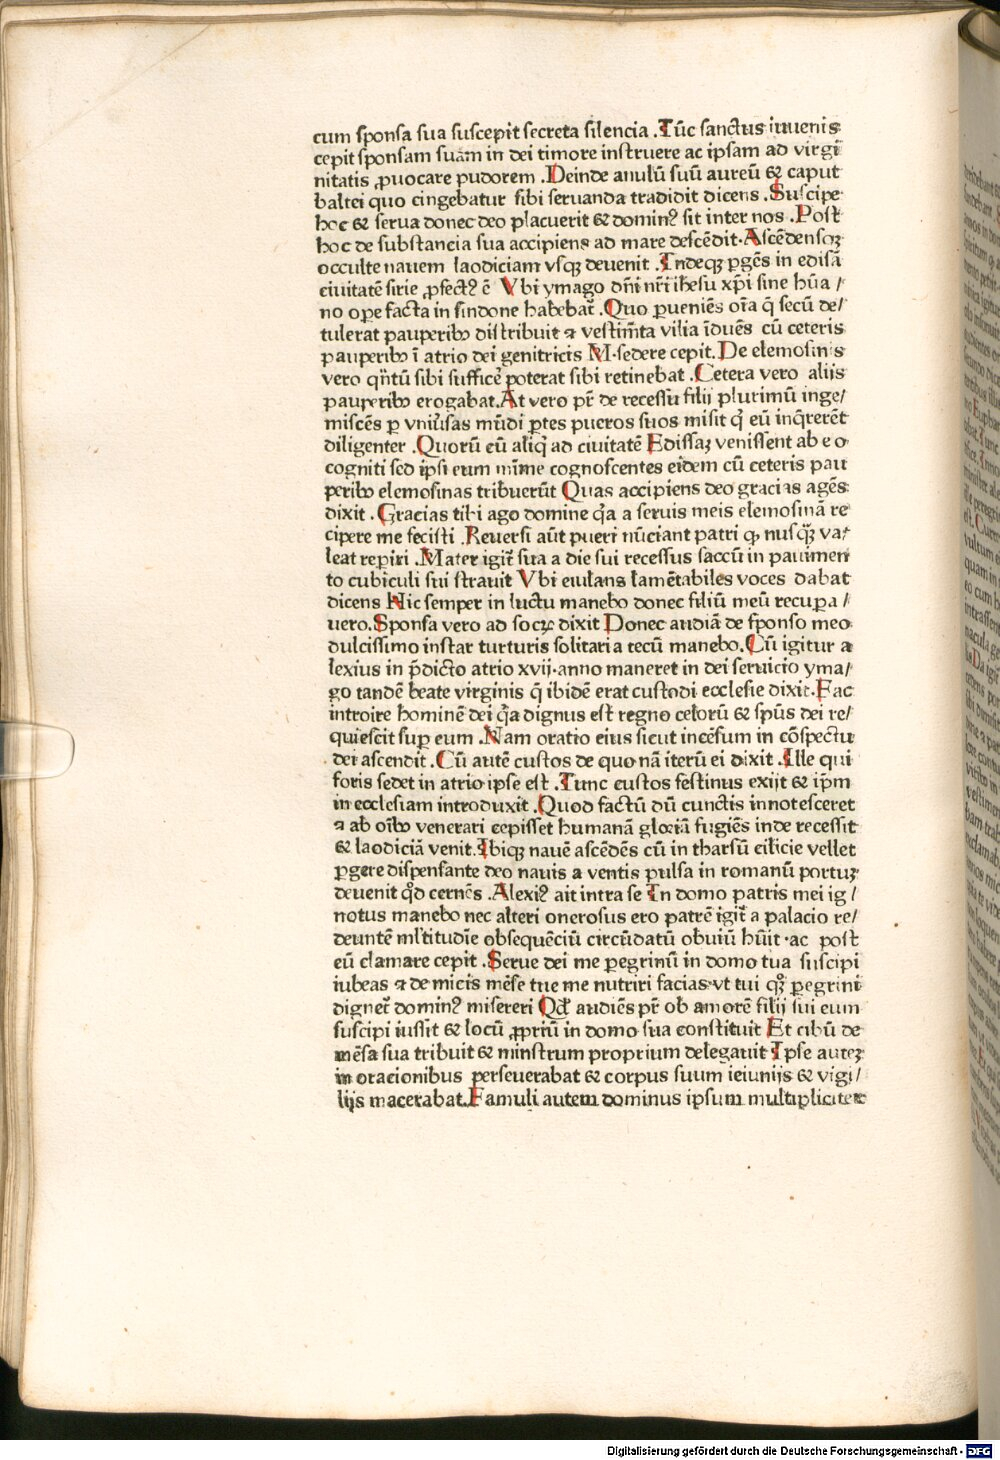 cum sponsa sua suscepit secreta silencia .Tūc sanctus iuuenis
cepit sponsam suam in dei timore instruere ac ipsam ad virgī
nitatis ꝓuocare pudorem .Deinde anulū suū aureū & caput
baltei quo cingebatur sibi seruanda tradidit dicens .Suscipe
hoc & serua donec deo placuerit & dominꝰ sit inter nos .Post
hoc de substancia sua accipiens ad mare descēdit·Ascēdensqꝫ
occulte nauem laodiciam vsqꝫ deuenit .Indeqꝫ ꝑgēs in edisā
ciuitatē sirie ꝓfectꝰ ē Vbi ymago dn̄i nr̄i ihesu xp̄i sine hūa /
no opere facta in sindone habebat᷑ .Quo ꝑueniēs oīa q̄ secū de/
tulerat pauperibꝰ distribuit ⁊ vestim̄ta vilia īduēs cū ceteris
pauperibꝰ ī atrio dei genitricis M·sedere cepit.De elemosinis
vero qn̄tū sibi suffice᷑ poterat sibi retinebat .Cetera vero aliis
pauperibꝰ erogabat.At vero pr̄ de recessu filij plurimū inge/
miscēs ꝑ vniu᷑sas mūdi ꝑtes pueros suos misit q̇ eū inq̇rerēt
diligenter .Quorū cū aliq̇ ad ciuitatē Edissaꝫ venissent ab e o
cogniti sed ipsi eum mīme cognoscentes eidem cū ceteris pau
peribꝰ elemosinas tribuerūt Quas accipiens deo gracias agēs
dixit .Gracias tibi ago domine q̇a a seruis meis elemosinā re
cipere me fecisti .Reuersi aūt pueri nūciant patri ꝙ nusq̄ꝫ va/
leat repiri .Mater igit᷑ sua a die sui recessus saccū in pauimen
to cubiculi sui strauit Vbi eiulans lamētabiles voces dabat
dicens Hic semper in luctu manebo donec filiū meū recuꝑa /
uero.Sponsa vero ad socꝝ dixit Donec audiā de sponso meo
dulcissimo instar turturis solitaria tecū manebo.Cū igitur a
lexius in p̄dicto atrio xvij·anno maneret in dei seruicio yma/
go tandē beate virginis q̄ ibidē erat custodi ecclesie dixit.Fac
introire hominē dei q̇a dignus est regno celorū & sp̄us dei re/
quiescit suꝑ eum .Nam oratio eius sicut incēsum in cōspectu
dei ascendit .Cū autē custos de quo nā iterū ei dixit .Ille qui
foris sedet in atrio ipse est .Tunc custos festinus exijt & ip̄m
in ecclesiam introduxit .Quod factū dū cunctis innotesceret
⁊ ab oībꝰ venerari cepisset humanā gloriā fugiēs inde recessit
& laodiciā venit.Ibiqꝫ nauē ascēdēs cū in tharsū cilicie vellet
ꝑgere dispensante deo nauis a ventis pulsa in romanū portuꝫ
deuenit qd̄ cernēs .Alexiꝰ ait intra se In domo patris mei ig /
notus manebo nec alteri onerosus ero patrē igit᷑ a palacio re/
deuntē ml̄titudīe obsequēciū circūdatū obuiū hūit ·ac post
eū clamare cepit .Serue dei me ꝑegrinū in domo tua suscipi
iubeas ⁊ de micis mēse tue me nutriri facias·vt tui qꝫ ꝑegrini
dignet᷑ dominꝰ misereri Qd̄ audiēs pr̄ ob amorē filij sui eum
suscipi iussit & locū ꝓpriū in domo sua constituit Et cibū de
mēsa sua tribuit & minstrum proprium delegauit Ipse auteꝫ
in oracionibus perseuerabat & corpus suum ieiuniis & vigi/
lijs macerabat.Famuli autem dominus ipsum multipliciter
Digitalisierung gefördert durch die Deutsche Forschungsgemeinschaft · DFG